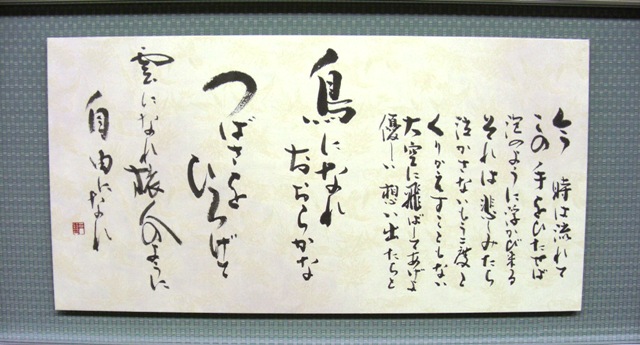 今 時は流れて
この手をひたせば
泡のように浮かび来る
それは悲しみたち
泣かさないもう二度と
くりかえすこともない
大空に飛ばしてあげよ
優しい想い出たちと
鳥になれ
おおらかな
つばさを
ひろげて
雲になれ旅人のように
自由になれ